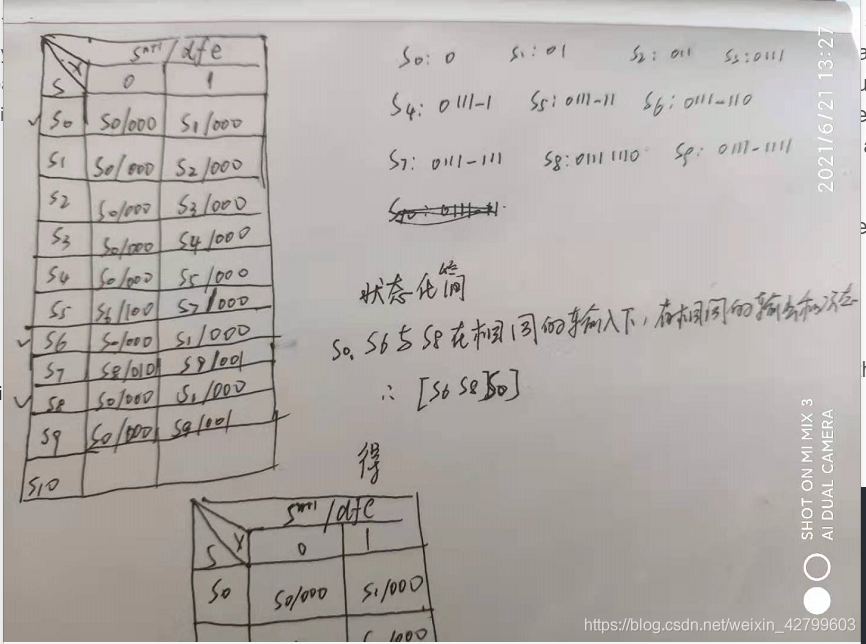 S^{n+1}/dfe
S X 0 1
✓ S0 S0/000 S1/000
S1 S0/000 S2/000
S2 S0/000 S3/000
S3 S0/000 S4/000
S4 S0/000 S5/000
S5 S6/100 S7/000
✓ S6 S0/000 S1/000
S7 S8/010 S9/001
✓ S8 S0/000 S1/000
S9 S0/000 S9/001
S10
S0: 0 S1: 01 S2: 011 S3: 0111
S4: 0111-1 S5: 0111-11 S6: 0111-110
S7: 0111-111 S8: 0111 1110 S9: 0111-1111
状态化简
S0, S6与S8在相同的输入下，有相同的输出和次态
∴ [S6 S8 S0]
得
S^{n+1}/dfe
S X 0 1
S0 S0/000 S1/000
/000
2021/6/21 13:27
SHOT ON MI MIX 3
AI DUAL CAMERA
https://blog.csdn.net/weixin_42799603